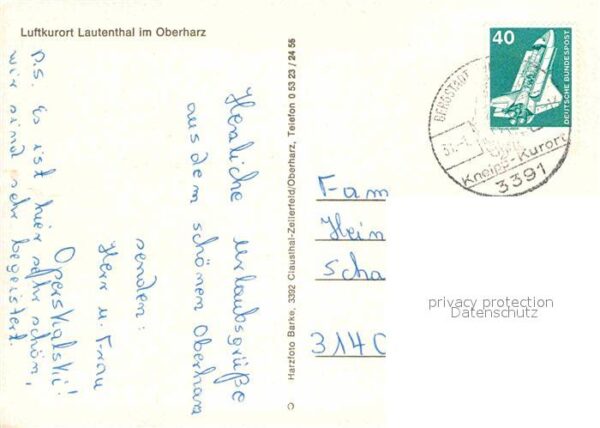 Luftkurort Lautenthal im Oberharz
Herzliche Urlaubsgrüße
aus dem schönen Oberharz
senden:
Herr u. Frau
Operskalski!
P.S. Es ist hier sehr schön,
wir sind sehr begeistert.
© Harzfoto Barke, 3392 Clausthal-Zellerfeld/Oberharz, Telefon 0 53 23 / 24 56
40
DEUTSCHE BUNDESPOST
BERGSTADT
Kneipp-Kurort
3391
Fam
Hein
Scha
3140
privacy protection
Datenschutz